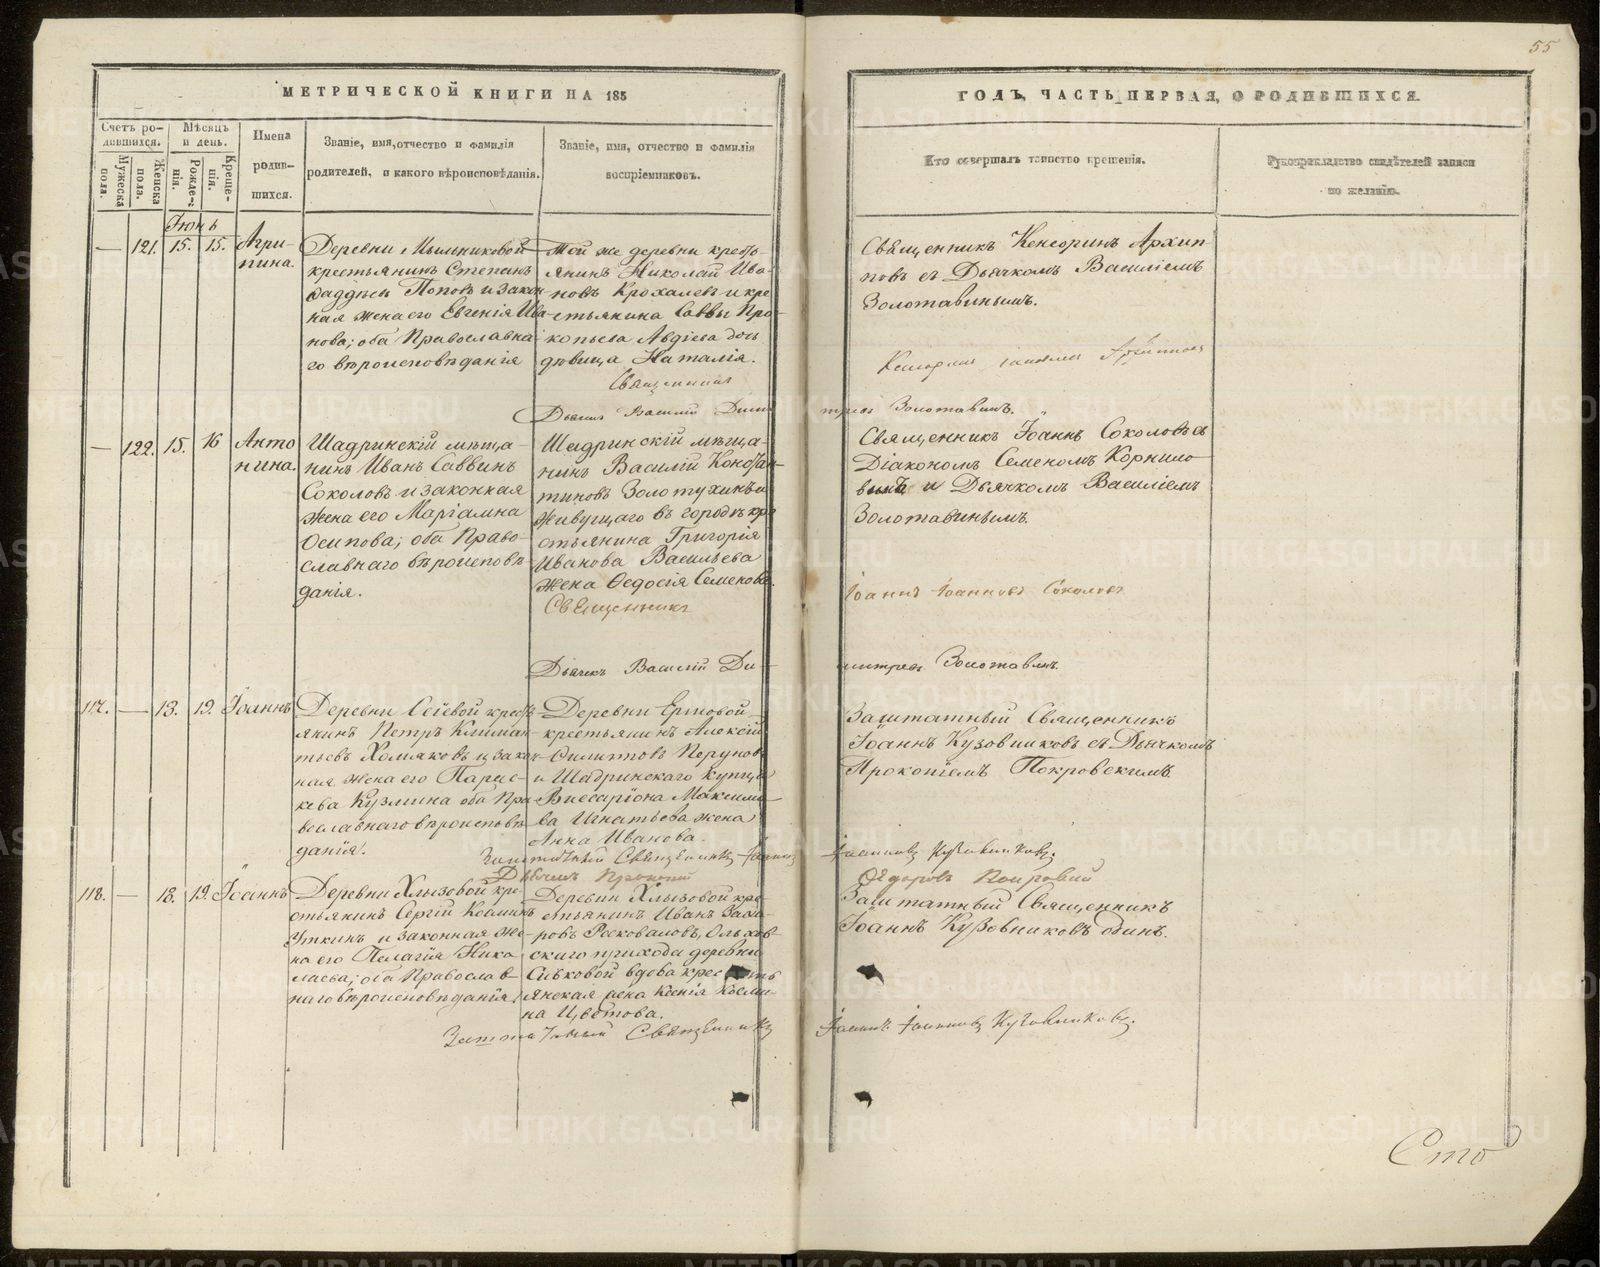 55
МЕТРИЧЕСКОЙ КНИГИ НА 185
ГОДЪ, ЧАСТЬ ПЕРВАЯ, О РОДИВШИХСЯ.
Счетъ ро-
дившихся.
Мужеска
пола.
Женска
пола.
Мѣсяцъ
и день.
Рожде-
нія.
Креще-
нія.
Имена
родив-
шихся.
Званіе, имя, отчество и фамилія
родителей, и какого вѣроисповѣданія.
Званіе, имя, отчество и фамилія
воспріемниковъ.
Кто совершалъ таинство крещенія.
Рукоприкладство свидѣтелей записи
по желанію.
Іюнь
— 121. 15. 15. Агри-
пина.
Деревни Мыльниковой
крестьянинъ Степанъ
Фаддѣевъ Поповъ и закон-
ная жена его Евгенія Ива-
нова; оба Православна-
го вѣроисповѣданія
Той же деревни кресть-
янинъ Николай Ива-
новъ Крохалевъ и кре-
стьянина Саввы Про-
копьева Авдіева дочь
дѣвица Наталія.
Священникъ Кенсоринъ Архип-
повъ съ Дьячкомъ Василіемъ
Золотавинымъ.
Священникъ
Дьячекъ Василій Дими
тріевъ Золотавинъ.
— 122. 15. 16 Анто
нина.
Шадринскій мѣща-
нинъ Иванъ Саввинъ
Соколовъ и законная
жена его Маріамна
Осипова; оба Право-
славнаго вѣроисповѣ-
данія.
Шадринскій мѣща-
нинъ Василій Констан-
тиновъ Золотухинъ и
живущаго въ городѣ кре
стьянина Григорія
Иванова Васильева
жена Ѳедосія Семенова.
Священникъ Іоаннъ Соколовъ съ
Діакономъ Семеномъ Корнило-
вымъ и Дьячкомъ Василіемъ
Золотавинымъ.
Священникъ
Іоаннъ Іоанновъ Соколовъ
Дьячекъ Василій Ди-
митріевъ Золотавинъ.
117. — 13. 19. Іоаннъ
Деревни Сосѣвой кресть-
янинъ Петръ Климан-
тьевъ Холмяковъ и закон-
ная жена его Парас-
кева Кузмина оба Пра-
вославнаго вѣроисповѣ-
данія.
Деревни Ершовой
крестьянинъ Алексій
Филитовъ Перуновъ
и Шадринскаго купца
Виссаріона Максимо-
ва Игнатьева жена
Анна Иванова.
Заштатный Священникъ
Іоаннъ Кузовниковъ съ Дьячкомъ
Прокопіемъ Покровскимъ.
Заштатный Священникъ Іоаннъ
Іоанновъ Кузовниковъ.
Дьячекъ Прокопій
Ѳедоровъ Покровскій
118. — 18. 19. Іоаннъ
Деревни Хлызовой кре-
стьянинъ Сергій Косминъ
Уткинъ и законная же-
на его Пелагія Нико
лаева; оба Православ-
наго вѣроисповѣданія.
Деревни Хлызовой кре-
стьянинъ Иванъ Заха-
ровъ Расковаловъ, Ольхов-
скаго прихода деревни
Сивковой вдова кресть
янская жена Ксенія Косми-
на Цвѣтова.
Заштатный Священникъ
Іоаннъ Кузовниковъ одинъ.
Заштатный Священникъ
Іоаннъ Іоанновъ Кузовниковъ.
Сто
METRIKI.GASO-URAL.RU